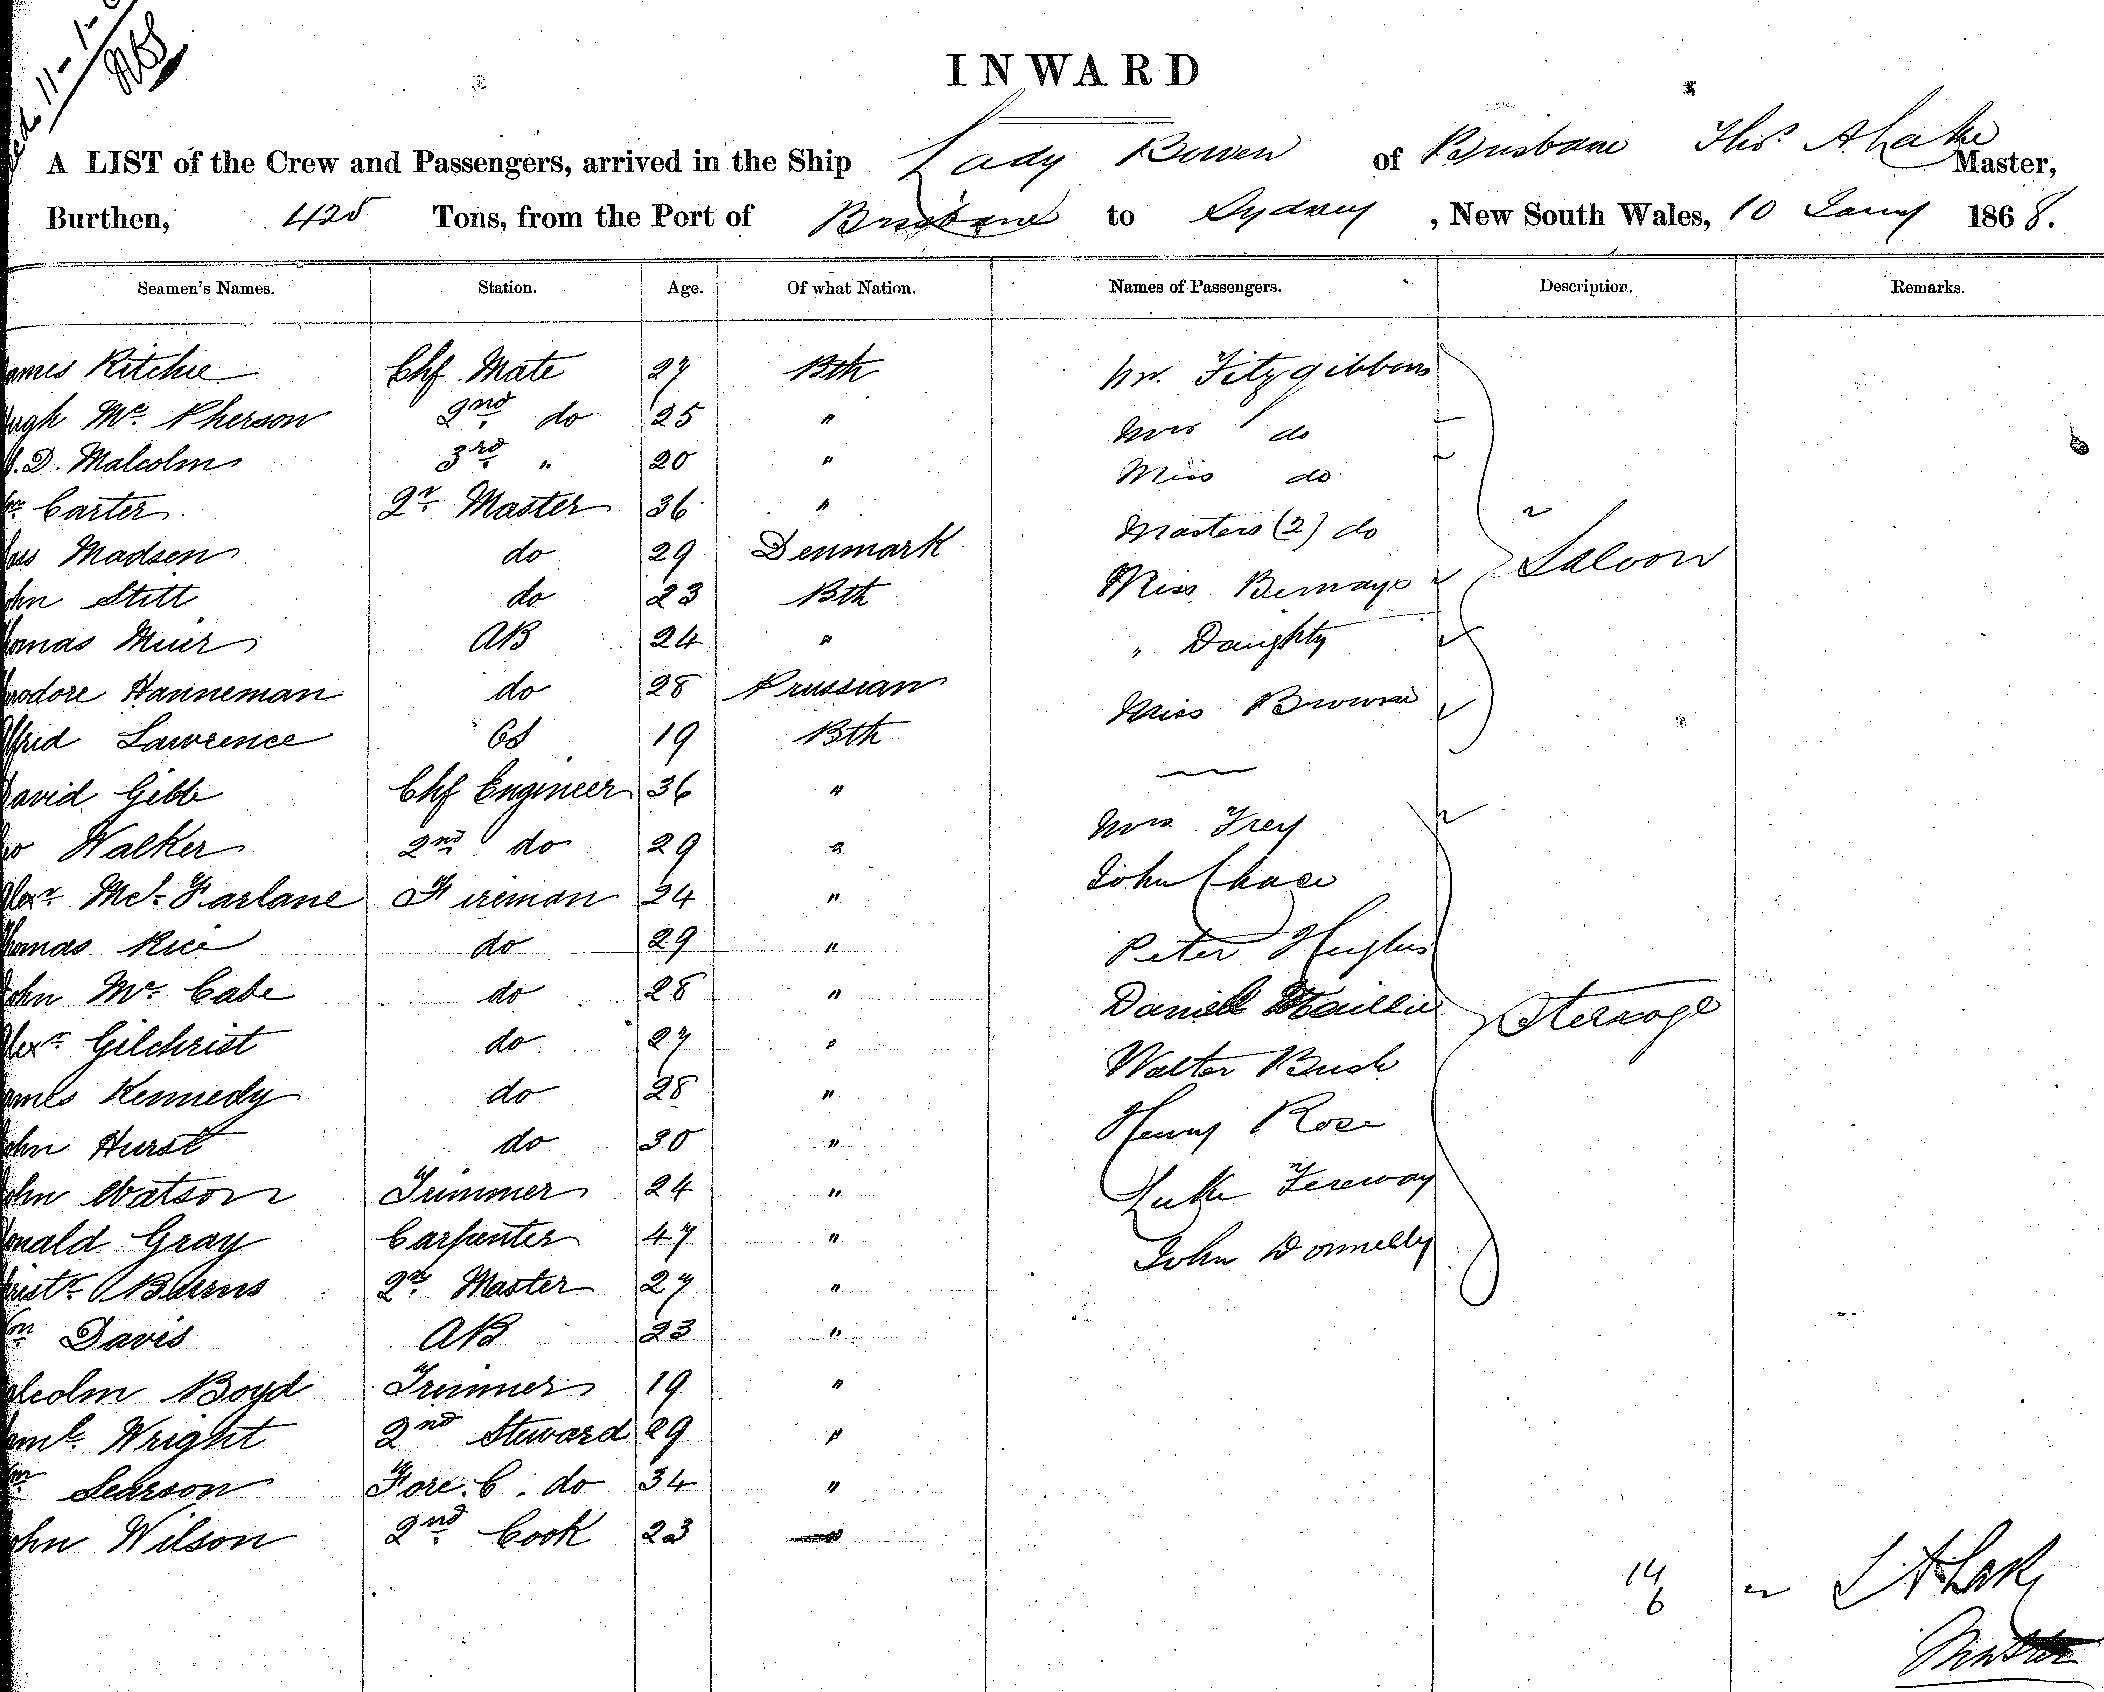 11-1-
INWARD
A LIST of the Crew and Passengers, arrived in the Ship Lady Bowen of Brisbane Thos. A Lake Master,
Burthen, 425 Tons, from the Port of Brisbane to Sydney, New South Wales, 10 Jany 1868.
Seamen's Names. Station. Age. Of what Nation. Names of Passengers. Description. Remarks.
ames Ritchie Chf Mate 27 Bth Mr. Fitzgibbons
ugh Mc Pherson 2nd do 25 " Mrs do
. D. Malcolm 3rd " 20 " Miss do
Carter Qr Master 36 " Masters (2) do
Madsen do 29 Denmark Saloon
ohn Stitt do 23 Bth Miss Bernays
omas Muir AB 24 " " Daughty
eodore Hanneman do 28 Prussian Miss Browne
lfrid Lawrence OS 19 Bth
avid Gibb Chf Engineer 36 "
Walker 2nd do 29 " Mrs Frey
lexr Mc Farlane Fireman 24 " John Chace
homas Rice do 29 " Peter Hughes
ohn Mc Cabe do 28 " Daniel Steerage
lexr Gilchrist do 27 " Walter Bush
ames Kennedy do 28 " Henry Rose
ohn Hurst do 30 "
ohn Watson Trimmer 24 " Luke
onald Gray Carpenter 47 " John Donnelly
hristr Burns Qr Master 27 "
m Davis AB 23 "
alcolm Boyd Trimmer 19 "
aml. Wright 2nd Steward 29 "
m Searson Fore. C. do 34 "
ohn Wilson 2nd Cook 23 "
14
6
T A Lake
Master